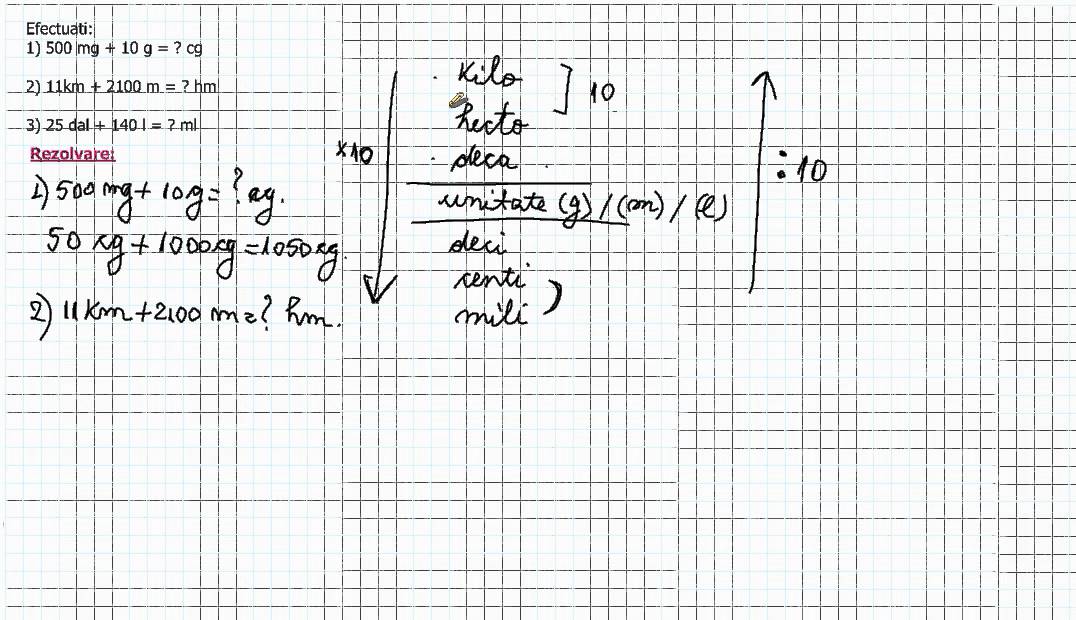 Efectuati:
1) 500 mg + 10 g = ? cg
2) 11km + 2100 m = ? hm
3) 25 dal + 140 l = ? ml
Rezolvare:
1) 500 mg + 10g = ? cg.
50 cg + 1000cg = 1050 cg.
2) 11 km + 2100 m = ? hm.
x10
kilo
hecto
10
deca
unitate (g) / (m) / (l)
deci
centi
mili
: 10